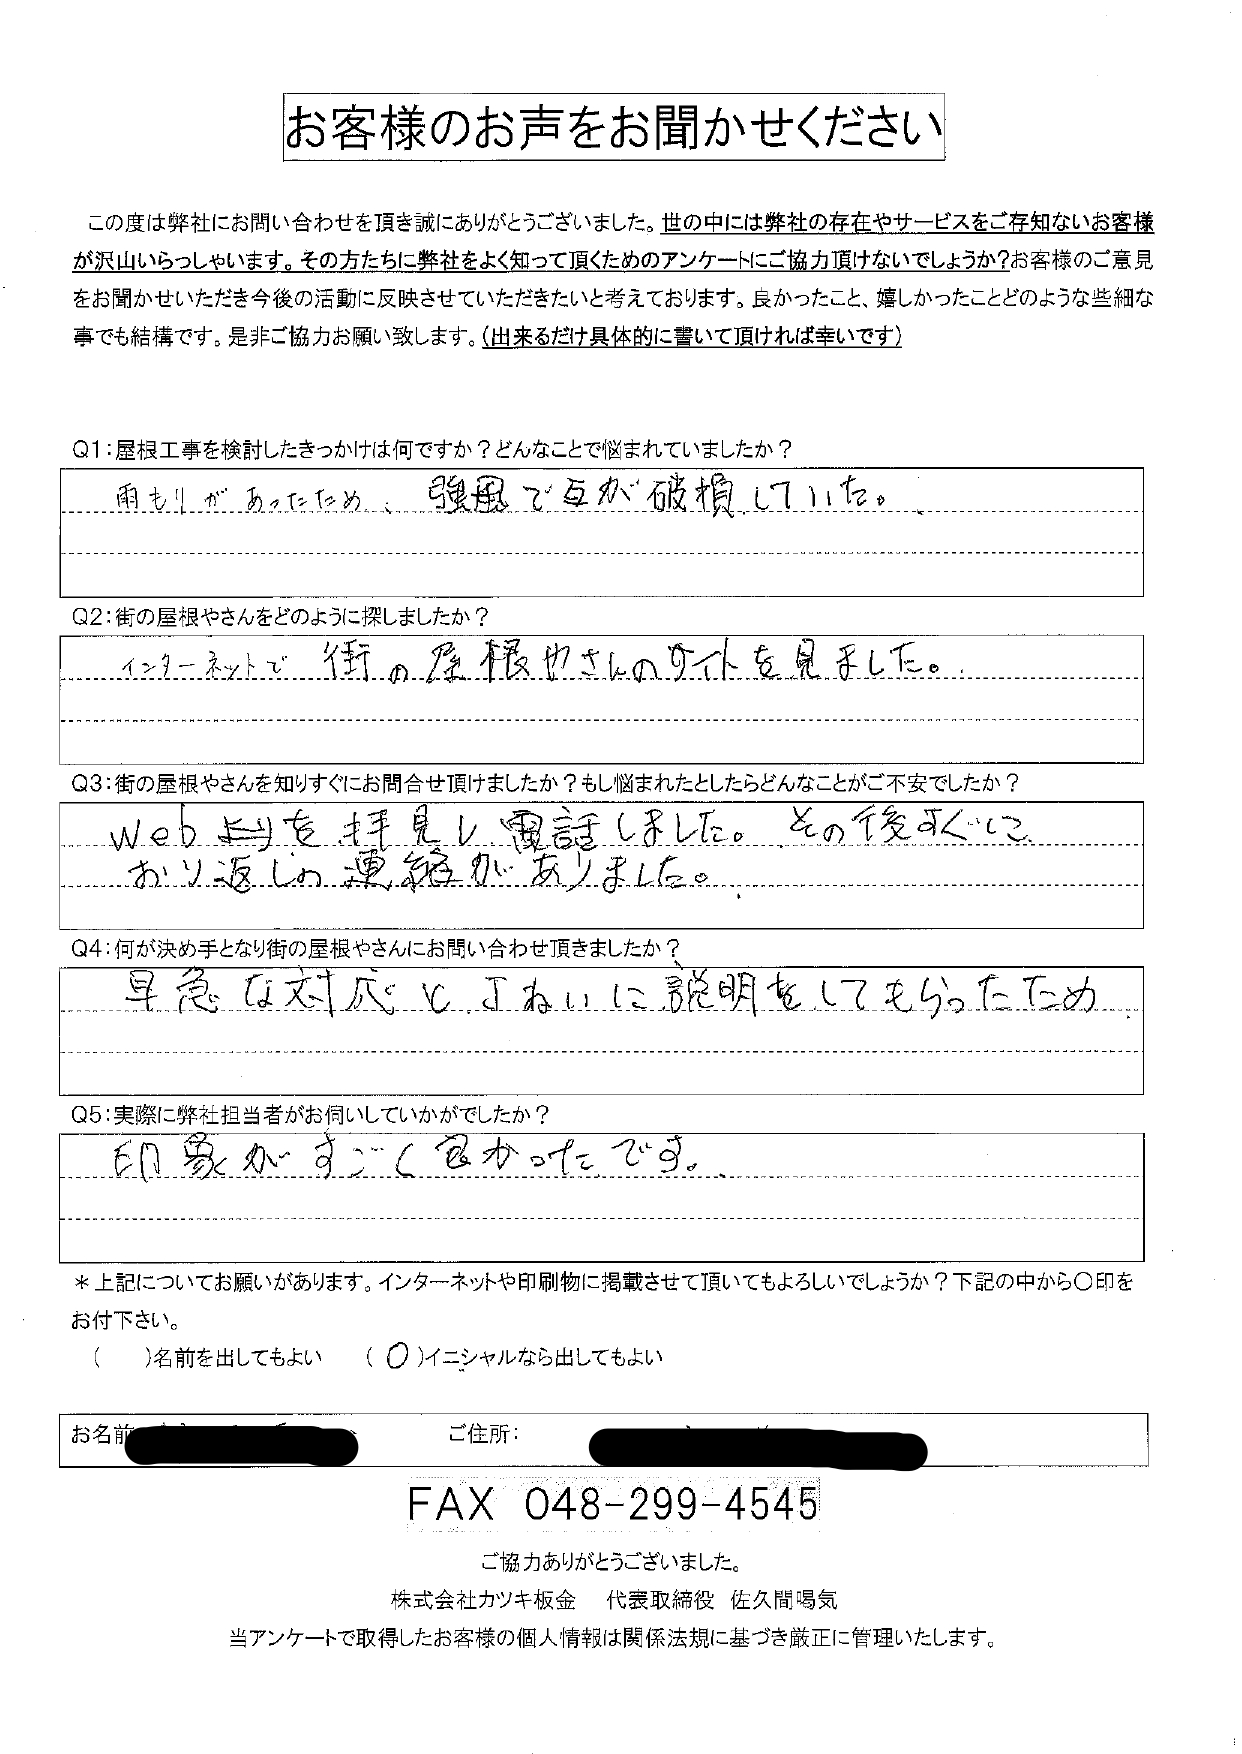 お客様のお声をお聞かせください
この度は弊社にお問い合わせを頂き誠にありがとうございました。世の中には弊社の存在やサービスをご存知ないお客様
が沢山いらっしゃいます。その方たちに弊社をよく知って頂くためのアンケートにご協力頂けないでしょうか?お客様のご意見
をお聞かせいただき今後の活動に反映させていただきたいと考えております。良かったこと、嬉しかったことどのような些細な
事でも結構です。是非ご協力お願い致します。(出来るだけ具体的に書いて頂ければ幸いです)
Q1:屋根工事を検討したきっかけは何ですか?どんなことで悩まれていましたか?
雨もりがあったため、強風で瓦が破損していた。
Q2:街の屋根やさんをどのように探しましたか?
インターネットで街の屋根やさんのサイトを見ました。
Q3:街の屋根やさんを知りすぐにお問合せ頂けましたか?もし悩まれたとしたらどんなことがご不安でしたか?
Webよりを拝見し電話しました。その後すぐに
おり返しの連絡がありました。
Q4:何が決め手となり街の屋根やさんにお問い合わせ頂きましたか?
早急な対応と丁ねいに説明をしてもらったため
Q5:実際に弊社担当者がお伺いしていかがでしたか?
印象がすごく良かったです。
*上記についてお願いがあります。インターネットや印刷物に掲載させて頂いてもよろしいでしょうか?下記の中から〇印を
お付下さい。
( )名前を出してもよい (〇)イニシャルなら出してもよい
お名前 ご住所:
FAX 048-299-4545
ご協力ありがとうございました。
株式会社カツキ板金 代表取締役 佐久間喝気
当アンケートで取得したお客様の個人情報は関係法規に基づき厳正に管理いたします。